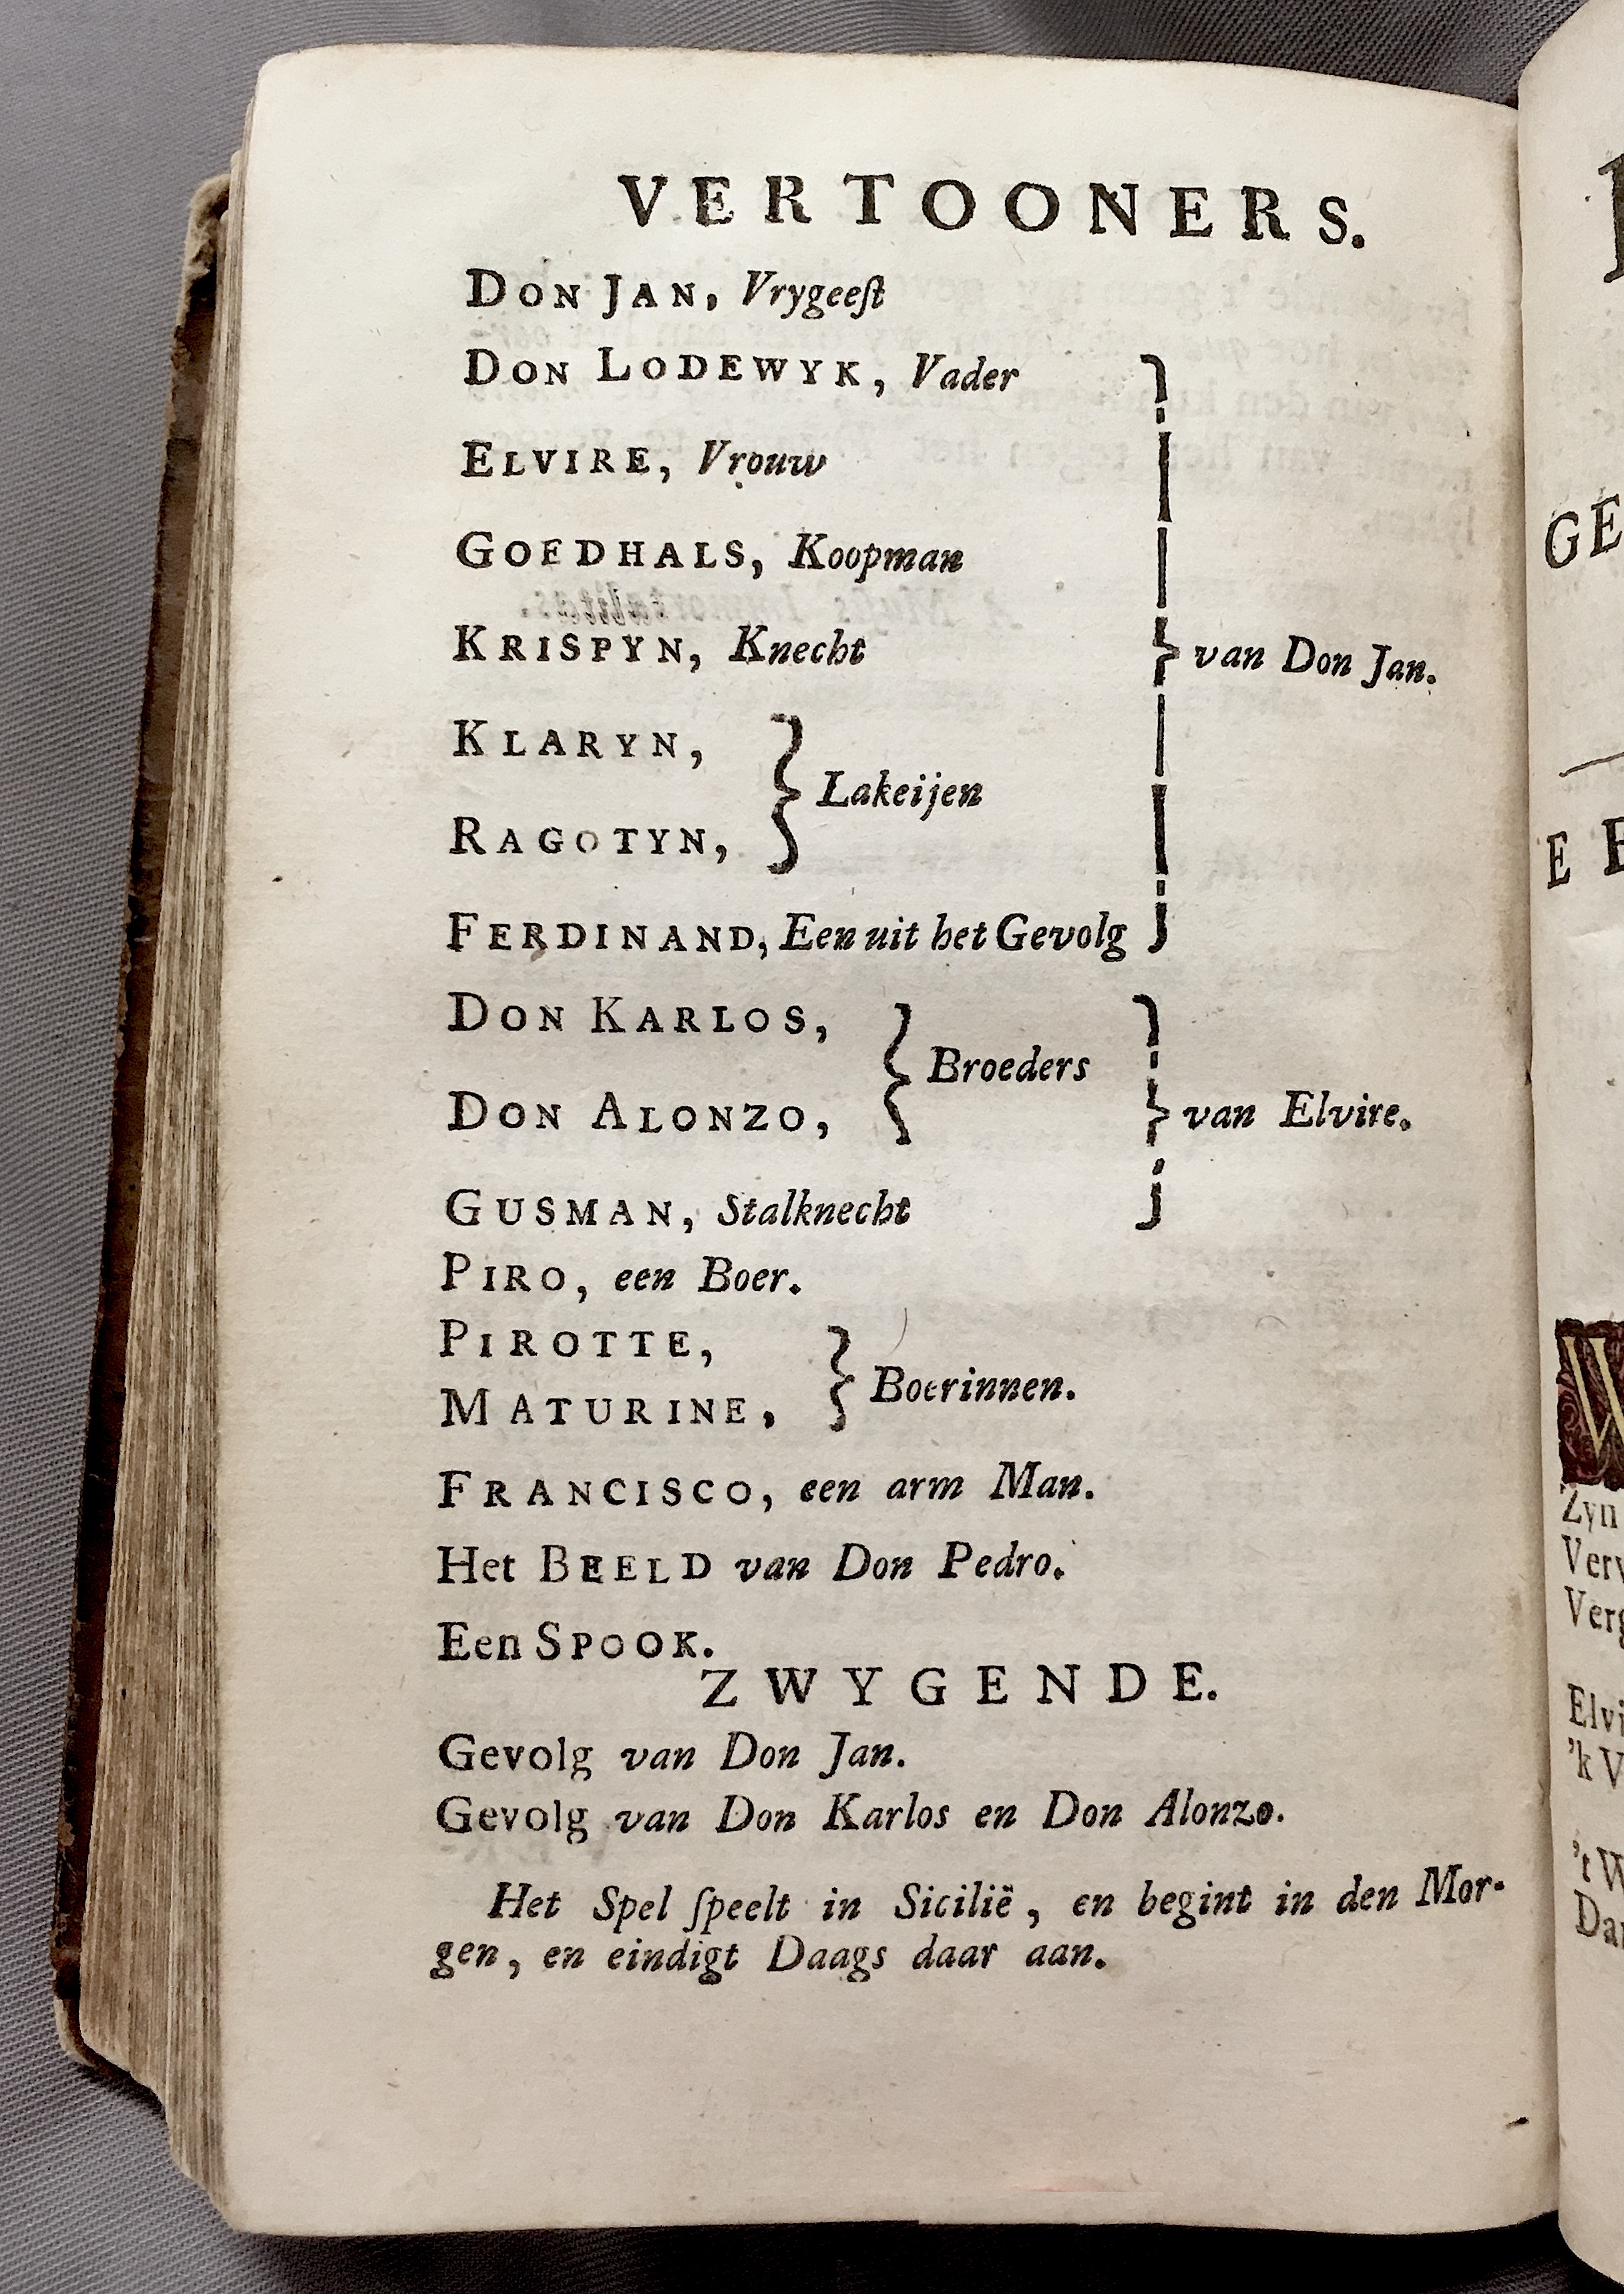 VERTOONERS.
DON JAN, Vrygeeſt
DON LODEWYK, Vader
ELVIRE, Vrouw
GOEDHALS, Koopman
KRISPYN, Knecht
van Don Jan.
KLARYN,
Lakeijen
RAGOTYN,
FERDINAND, Een uit het Gevolg
DON KARLOS,
Broeders
DON ALONZO,
van Elvire.
GUSMAN, Stalknecht
PIRO, een Boer.
PIROTTE,
Boerinnen.
MATURINE,
FRANCISCO, een arm Man.
Het BEELD van Don Pedro.
Een SPOOK.
ZWYGENDE.
Gevolg van Don Jan.
Gevolg van Don Karlos en Don Alonzo.
Het Spel ſpeelt in Sicilië, en begint in den Mor-
gen, en eindigt Daags daar aan.
GE
E
W
Zyn
Elvi
'k V
't W